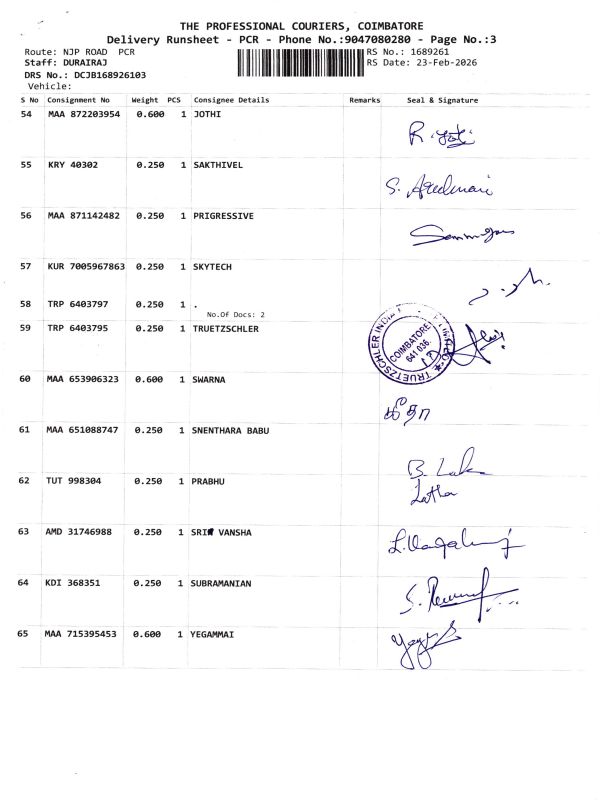 THE PROFESSIONAL COURIERS, COIMBATORE
Delivery Runsheet - PCR - Phone No.:9047080280 - Page No.:3
Route: NJP ROAD PCR
RS No.: 1689261
Staff: DURAIRAJ
RS Date: 23-Feb-2026
DRS No.: DCJB168926103
Vehicle:
S No Consignment No Weight PCS Consignee Details Remarks Seal & Signature
54 MAA 872203954 0.600 1 JOTHI
55 KRY 40302 0.250 1 SAKTHIVEL
56 MAA 871142482 0.250 1 PRIGRESSIVE
57 KUR 7005967863 0.250 1 SKYTECH
58 TRP 6403797 0.250 1 .
No.Of Docs: 2
59 TRP 6403795 0.250 1 TRUETZSCHLER
TRUETZSCHLER INDIA
COIMBATORE
641 036.
60 MAA 653906323 0.600 1 SWARNA
61 MAA 651088747 0.250 1 SNENTHARA BABU
B. Lak
62 TUT 998304 0.250 1 PRABHU
Latha
63 AMD 31746988 0.250 1 SRI VANSHA
64 KDI 368351 0.250 1 SUBRAMANIAN
65 MAA 715395453 0.600 1 YEGAMMAI